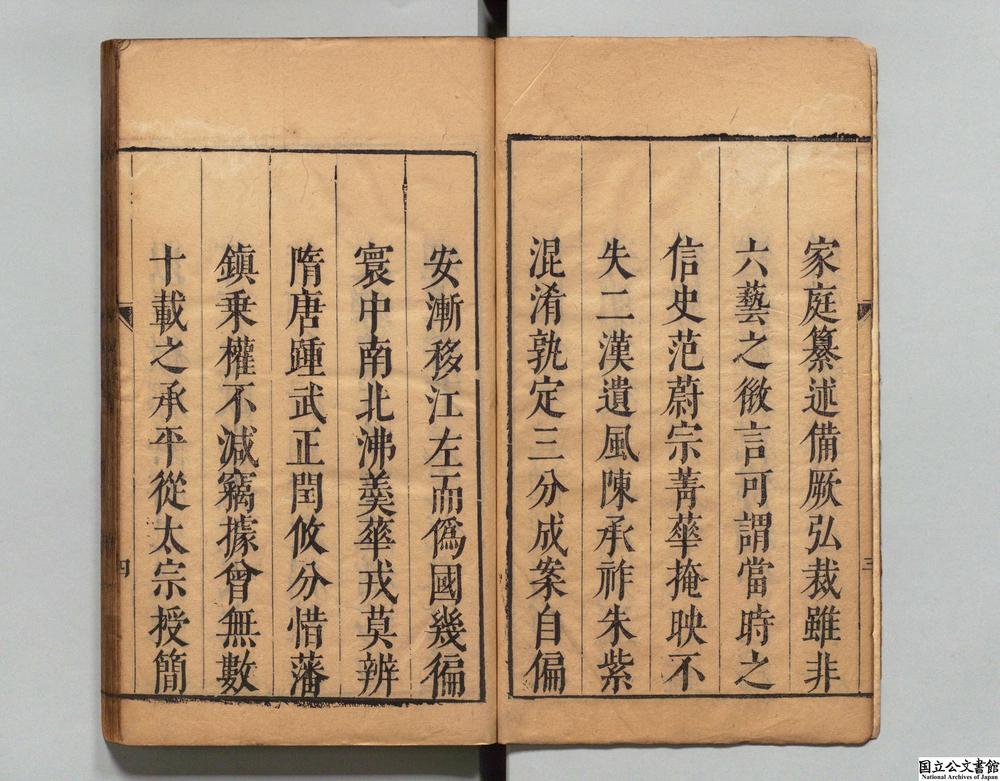 家庭纂述備厥弘裁雖非
六藝之微言可謂當時之
信史范蔚宗菁華掩映不
失二漢遺風陳承祚朱紫
混淆孰定三分成案自偏
三
安漸移江左而僞國幾徧
寰中南北沸羹華戎莫辨
隋唐踵武正閏攸分惜藩
鎮乗權不減竊據曾無數
十載之承平從太宗授簡
四
国立公文書館
National Archives of Japan